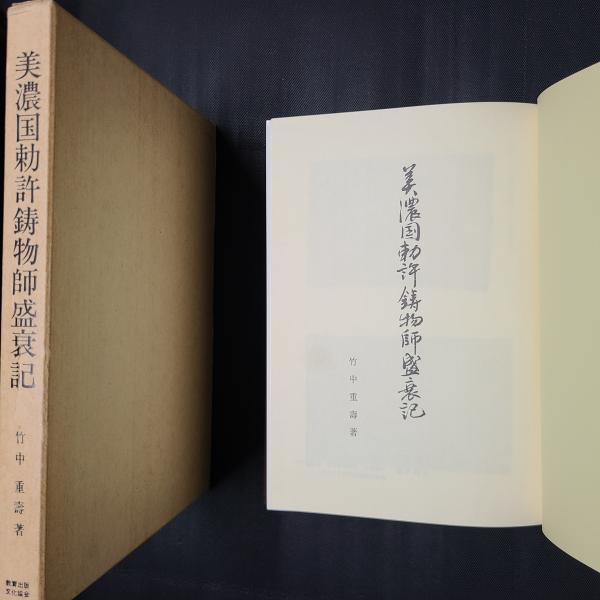 美濃国勅許鋳物師盛衰記
竹中重壽著
教育出版
文化協会
美濃国勅許鋳物師盛衰記
竹中重壽著